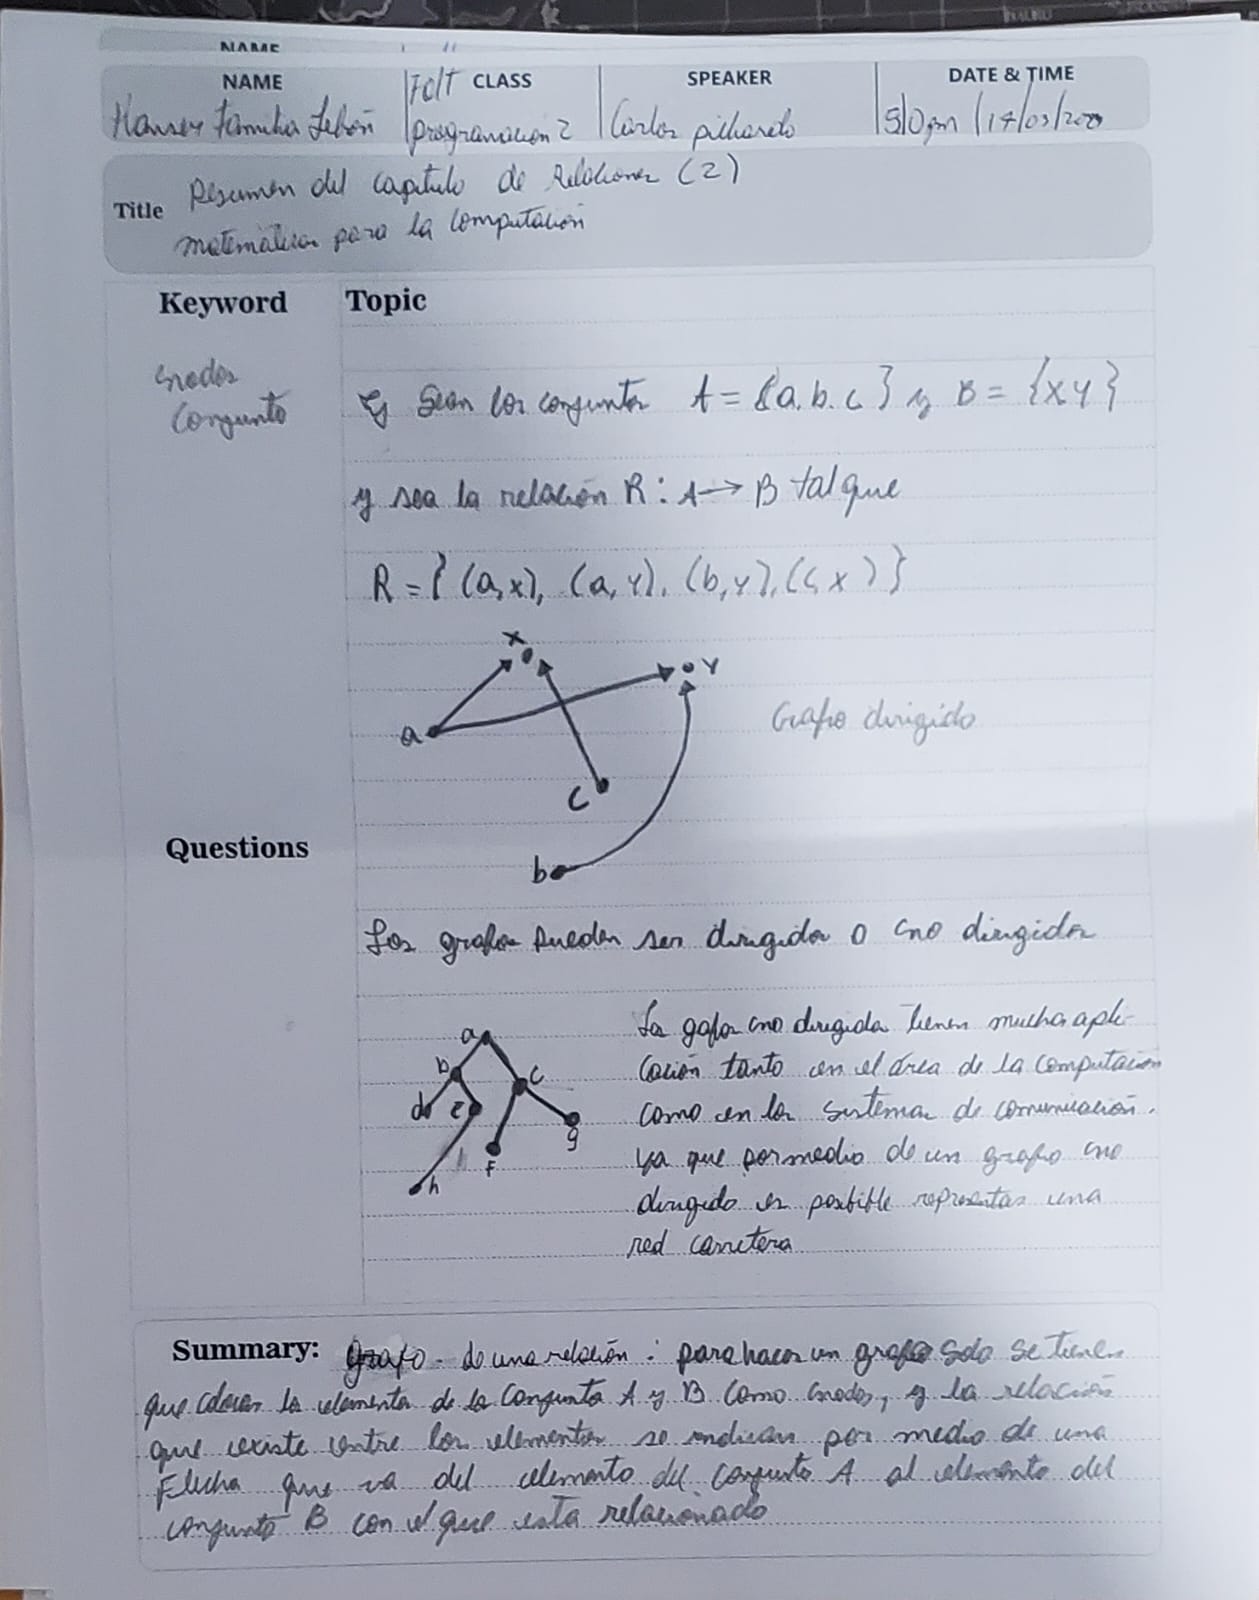 NAME
NAME
CLASS
SPEAKER
DATE & TIME
Familia
programacion 2
Carlos pichardo
Title
Resumen del capitulo de Relaciones (2)
matematica para la computación
Keyword
Topic
nodos
Conjunto
Ej Sean los conjuntos A = {a, b, c } y B = {x y }
y sea la relación R : A → B tal que
R = { (a, x), (a, y), (b, y), (c, x ) }
x
y
a
c
b
Grafo dirigido
Questions
Los grafos pueden ser dirigidos o no dirigidos
a
b
c
d
e
f
g
h
Los grafos no dirigidos tienen mucha apli-
cación tanto en el área de la computación
como en los sistemas de comunicación.
ya que por medio de un grafo no
dirigido es posible representar una
red carretera
Summary: Grafo - de una relación : para hacer un grafo solo se tienen
que colocar los elementos de los conjuntos A y B como nodos, y la relación
que existe entre los elementos se indican por medio de una
Flecha que va del elemento del conjunto A al elemento del
conjunto B con el que esta relacionado